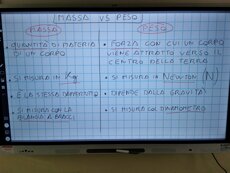 MASSA VS PESO
MASSA
PESO
• QUANTITÀ DI MATERIA
DI UN CORPO
• FORZA CON CUI UN CORPO
VIENE ATTRATTO VERSO IL
CENTRO DELLA TERRA
• SI MISURA IN Kg
• SI MISURA IN NEWTON (N)
• È LA STESSA DAPPERTUTTO
• DIPENDE DALLA GRAVITÀ
• SI MISURA CON LA
BILANCIA A BRACCI
• SI MISURA COL DINAMOMETRO